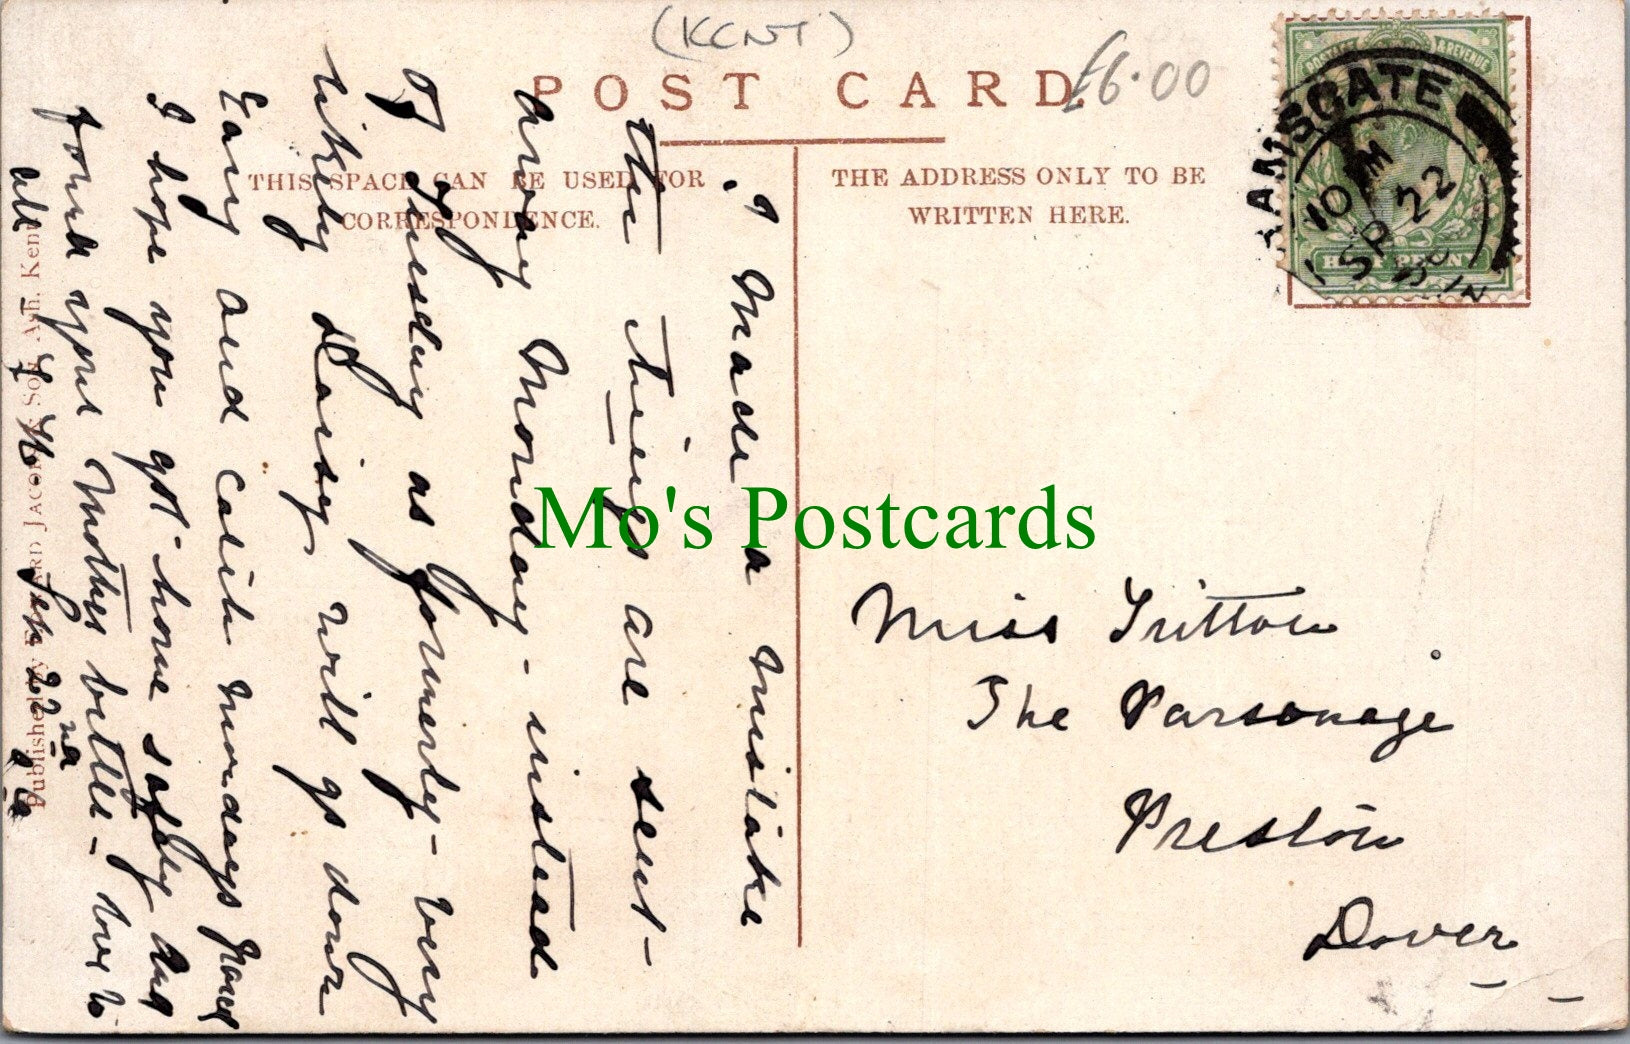 (KENT)
£6.00
POST CARD.
THIS SPACE CAN BE USED FOR
CORRESPONDENCE.
THE ADDRESS ONLY TO BE
WRITTEN HERE.
POSTAGE & REVENUE
HALF PENNY
RAMSGATE
10 AM
SP 22
I made a mistake
the things are sent -
away Monday - instead
of Tuesday as formerly - very
likely Daisy will go down
Early and catch Mondays
I hope you got home safely and
found your Mother better - love to
all
Sep 22nd
Published by Edward Jacob & Son, Ash, Kent
Mo's Postcards
Miss Tritton
The Parsonage
Preston
Dover